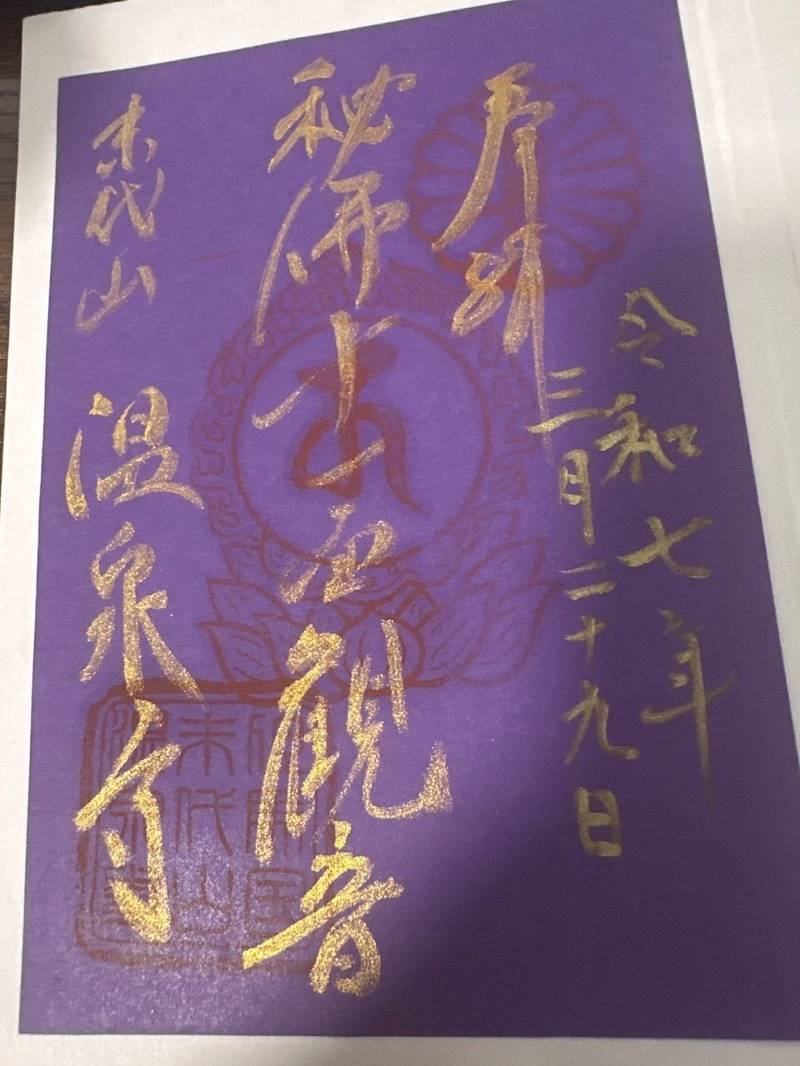 奉拝
令和七年
三月二十九日
秘佛十一面觀音
末代山 温泉寺
末代山